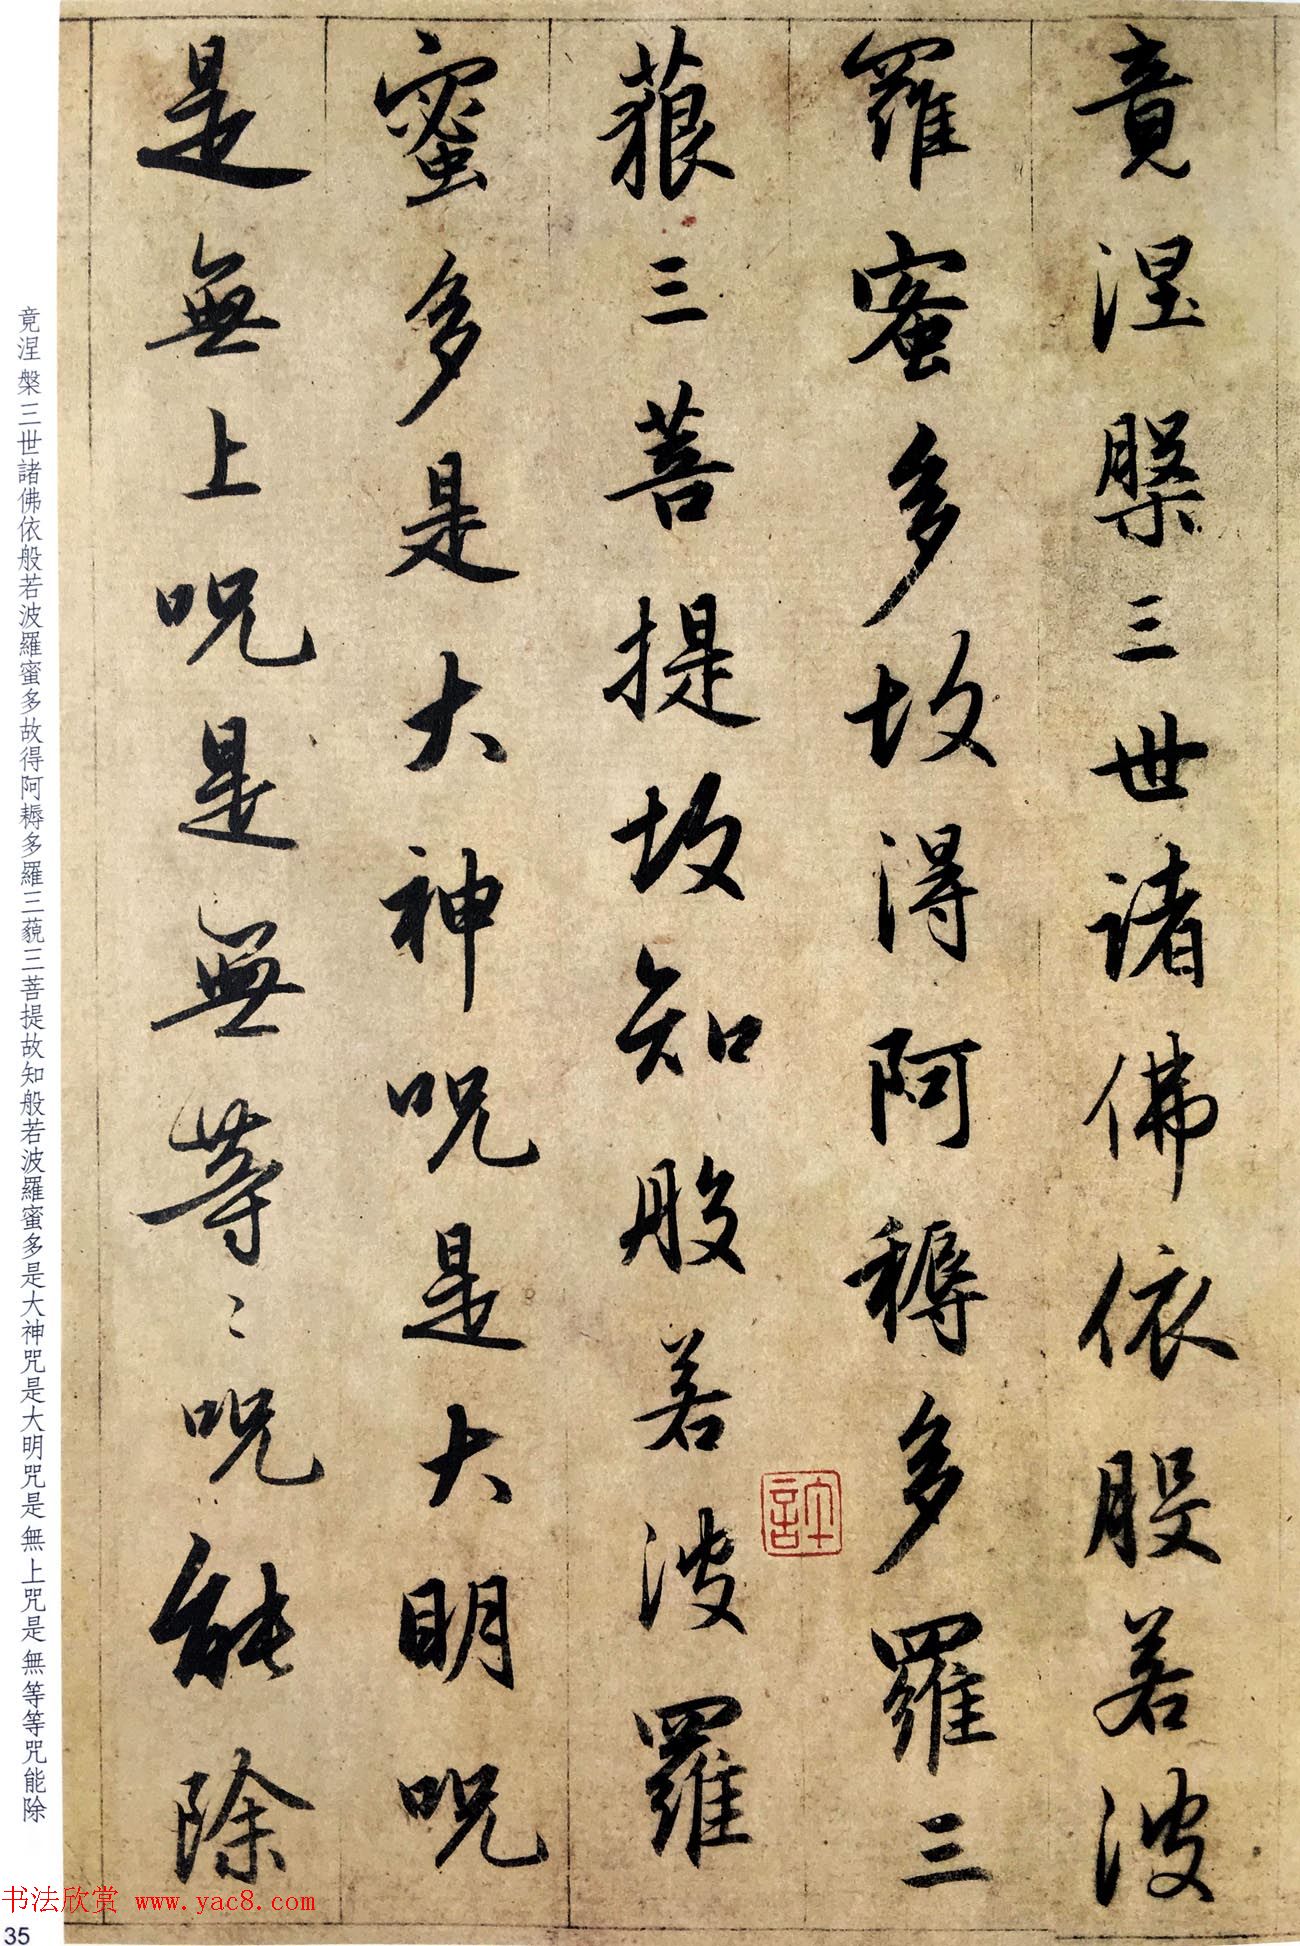 竟涅槃三世諸佛依般若波
羅蜜多故得阿耨多羅三
藐三菩提故知般若波羅
蜜多是大神呪是大明呪
是無上呪是無等〻呪能除
竟涅槃三世諸佛依般若波羅蜜多故得阿耨多羅三藐三菩提故知般若波羅蜜多是大神咒是大明咒是無上咒是無等等咒能除
書法欣赏 www.yac8.com
35